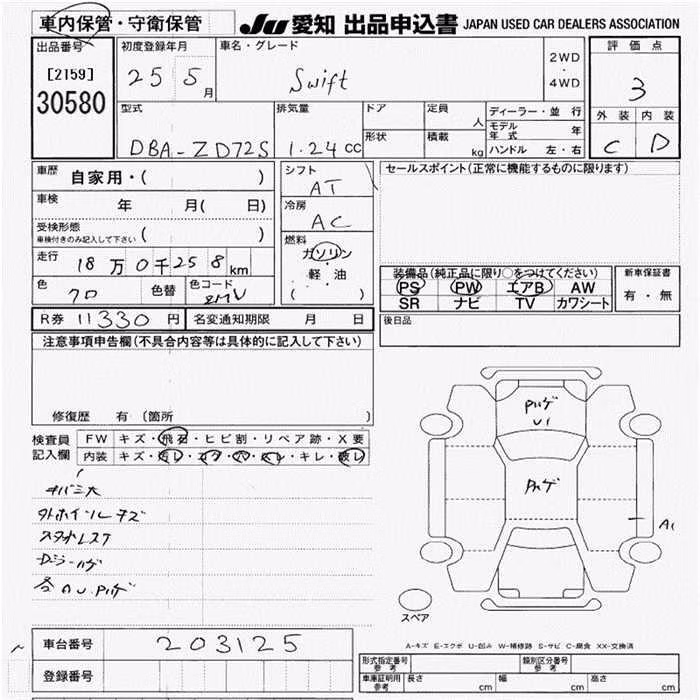 車内保管・守衛保管 JU 愛知 出品申込書 JAPAN USED CAR DEALERS ASSOCIATION
出品番号 初度登録年月 車名・グレード 評価点
[2159] 25 5月 Swift 2WD・4WD 3
30580 外装 内装
型式 排気量 ドア 定員 人 ディーラー・並行 C D
形状 積載 kg モデル年式 年
DBA-ZD72S 1.24 CC ハンドル 左・右
車歴 自家用・( ) シフト AT セールスポイント(正常に機能するものに限ります)
車検 年 月( 日) 冷房 AC
受検形態
車検付きのみ記入して下さい
燃料 ガソリン
軽・油
( )
走行 18万0千258km
装備品(純正品に限り○をつけてください) 新車保証書
PS PW エアB AW 有・無
SR ナビ TV カワシート
色 クロ 色替 色コード ZMV
R券 11330円 名変通知期限 月 日 後日品
注意事項申告欄(不具合内容等は具体的に記入して下さい)
修復歴 有(箇所 )
検査員記入欄 FW キズ・飛石・ヒビ割・リペア跡・X要
内装 キズ・汚レ・コゲ・穴・スレ・キレ・破レ
Pハゲ
U1
Pハゲ
A1
スペア
A-キズ E-エクボ U-凹み W-補修跡 S-サビ C-腐食 XX-交換済
車台番号 203125
登録番号
形式指定番号 参考 類別区分番号 参考
車庫証明用 参考 長さ cm 幅 cm 高さ cm